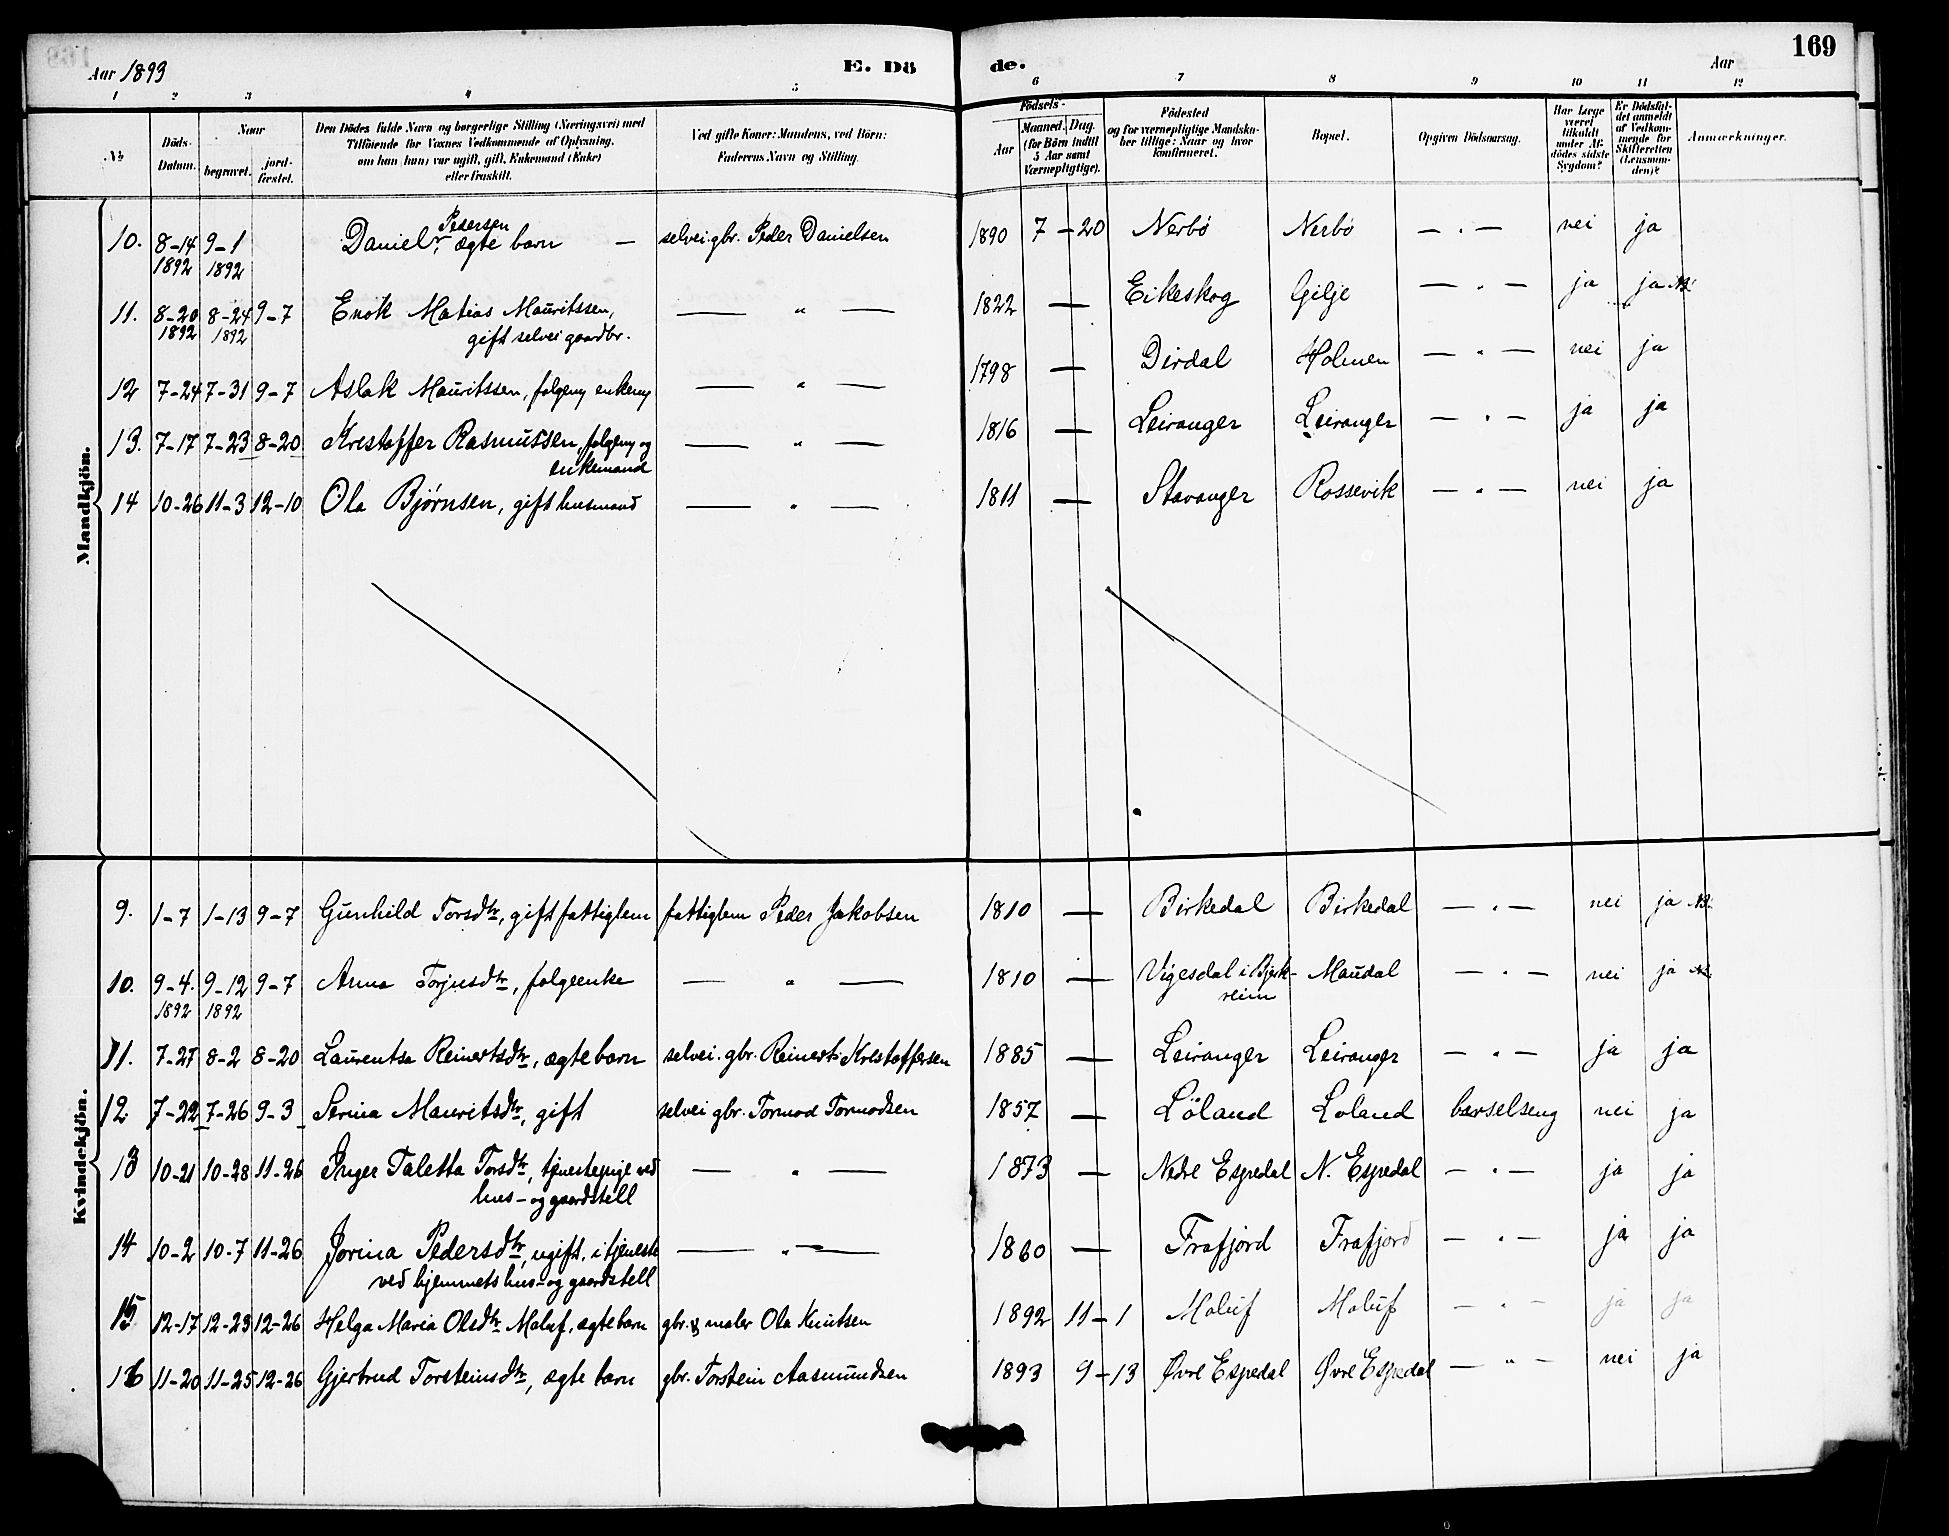 169
Aar 1893 E. Dö de. Aar
1 2 3 4 5 6 7 8 9 10 11 12
No. Döds-Datum. Naar begravet. jord-fæstet. Den Dödes fulde Navn og borgerlige Stilling (Næringsvei) med Tilföiende for Voxnes Vedkommende af Oplysning, om han (hun) var ugift, gift, Enkemand (Enke) eller fraskilt. Ved gifte Koner: Mandens, ved Börn: Faderens Navn og Stilling. Födsels- Aar Maaned. Dag. (for Börn indtil 5 Aar samt Værnepligtige). Födested og for værnepligtige Mandska-ber tillige: Naar og hvor konfirmeret. Bopæl. Opgiven Dödsaarsag. Har Læge været tilkaldt under Af-dödes sidste Sygdom? Er Dödsfal-det anmeldt af Vedkom-mende for Skifteretten (Lensman-den)? Anmærkninger.
Mandkjön.
10. 8-14 1892 9-1 1892 Daniel Pedersen, ægte barn — selvei.gbr. Peder Danielsen 1890 7-20 Nerbø Nerbø — . — nei ja
11. 8-20 1892 8-24 1892 9-7 Enok Matias Mauritssen, — " — 1822 — Eikeskog Gilje — " — ja ja NB.
gift selvei gaardbr.
12 7-24 7-31 9-7 Aslak Mauritssen, folgem, enkem, — " — 1798 — Dirdal Holmen — " — nei ja
13. 7-17 7-23 8-20 Kristoffer Rasmussen, folgem, og — " — 1816 — Leiranger Leiranger — " — ja ja
enkemand
14 10-26 11-3 12-10 Ola Bjørnsen, gift husmand — " — 1811 — Stavanger Rossevik — " — nei ja
Kvindekjön.
9. 1-7 1-13 9-7 Gunhild Torsdtr, gift fattiglem fattiglem Peder Jakobsen 1810 — Birkedal Birkedal — " — nei ja NB.
10. 9-4. 1892 9-12 1892 9-7 Anna Torjusdtr, folgeenke — " — 1810 — Vigesdal i Bjerk-reim Maudal — " — nei ja NB.
11. 7-27 8-2 8-20 Laurentsa Reinertsdtr, ægte barn selvei. gbr. Reinert Kristoffersen 1885 — Leiranger Leiranger — " — ja ja
12 7-22 7-26 9-3 Serina Mauritsdtr, gift selvei gbr. Tormod Tormodsen 1857 — Löland Loland barselseng nei ja
13 10-21 10-28 11-26 Inger Taletta Torsdtr, tjenestepige ved — " — 1873 — Nedre Espedal N. Espedal — " — ja ja
hus- og gaardstell
14 10-2 10-7 11-26 Jorina Pedersdtr, ugift, i tjeneste — " — 1860 — Frafjord Frafjord — " — ja ja
ved hjemmets hus- og gaardstell
15 12-17 12-23 12-26 Helga Maria Olsdtr Maluf, ægte barn gbr. & maler Ola Knutsen 1892 11-1 Maluf Maluf — " — ja ja
16 11-20 11-25 12-26 Gjertrud Torsteinsdtr, ægte barn gbr. Torstein Aasmundsen 1893 9-13 Øvre Espedal Øvre Espedal — " — nei ja